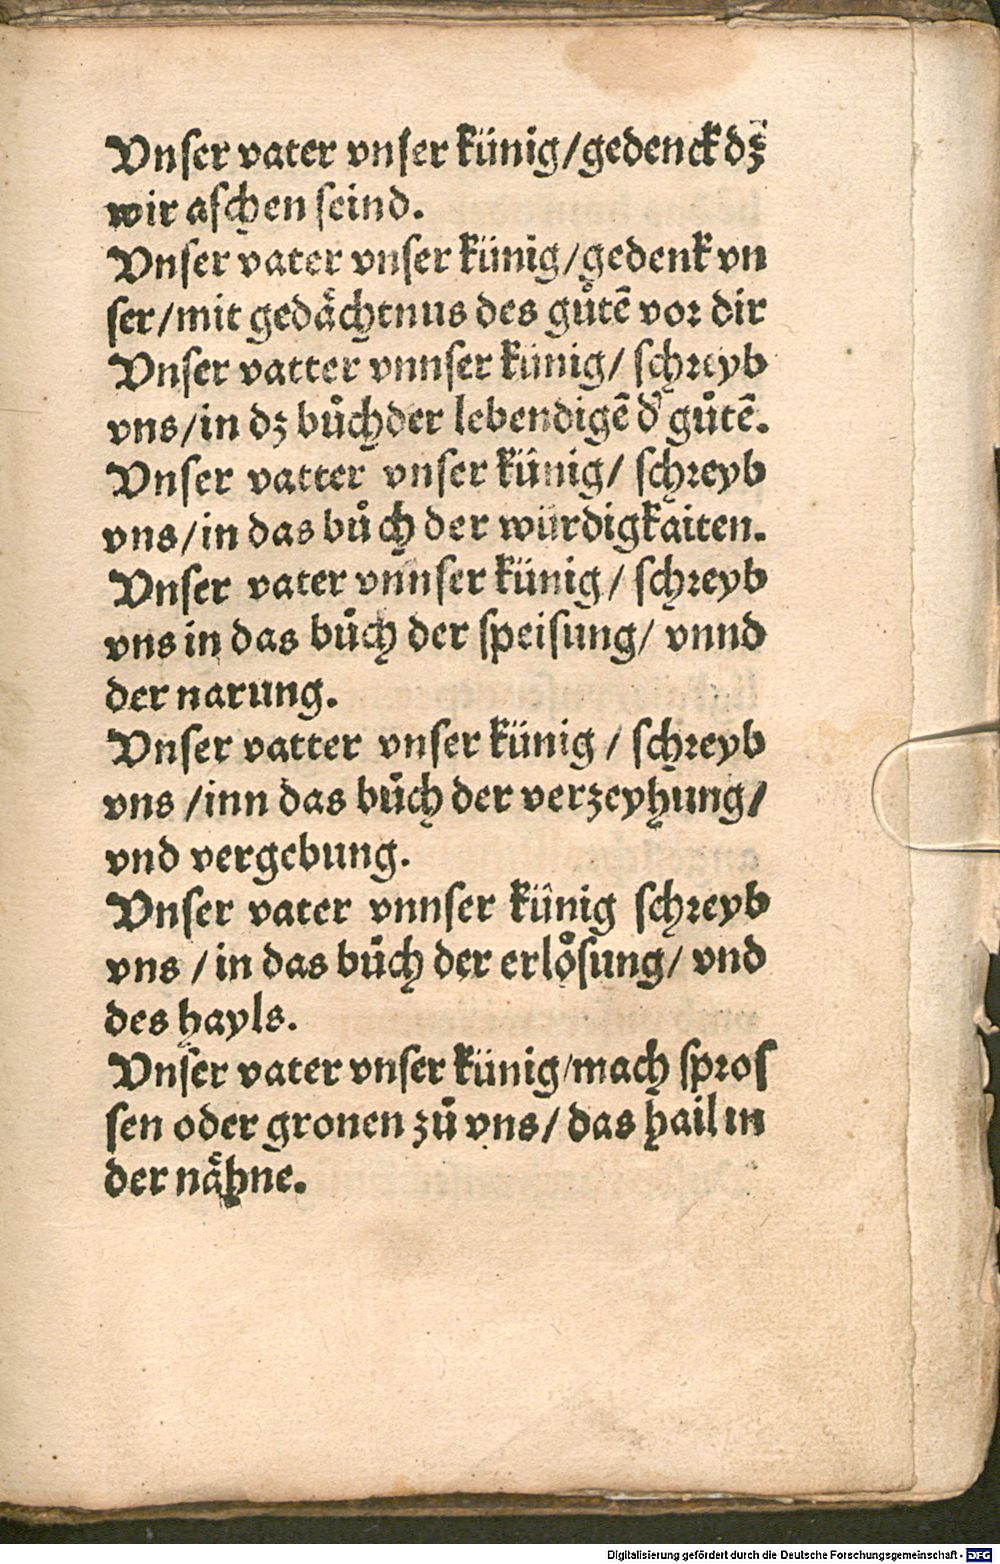 Vnſer vater vnſer künig/gedenck dz̄
wir aſchen ſeind.
Vnſer vater vnſer künig/gedenk vn
ſer/mit gedaͤchtnus des guͦtē vor dir
Vnſer vatter vnnſer künig/ ſchreyb
vns/in dz buͦch der lebendigē d' guͦtē.
Vnſer vatter vnſer künig/ ſchreyb
vns/in das buͦch der würdigkaiten.
Vnſer vater vnnſer künig/ ſchreyb
vns in das buͦch der ſpeiſung/ vnnd
der narung.
Vnſer vatter vnſer künig / ſchreyb
vns /inn das buͦch der verzeyhung/
vnd vergebung.
Vnſer vater vnnſer künig ſchreyb
vns / in das buͦch der erloͤſung/ vnd
des hayls.
Vnſer vater vnſer künig/mach ſproſ
ſen oder gronen zuͦ vns/ das hail in
der naͤhne.
Digitalisierung gefördert durch die Deutsche Forschungsgemeinschaft - DFG